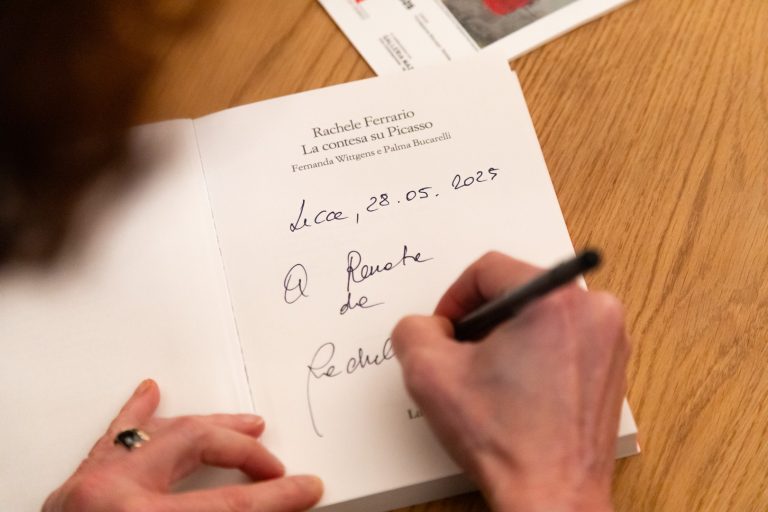 GALLERIA NAZ
Rachele Ferrario
La contesa su Picasso
Fernanda Wittgens e Palma Bucarelli
Lecce, 28.05.2025
A Renata
da
Rachel